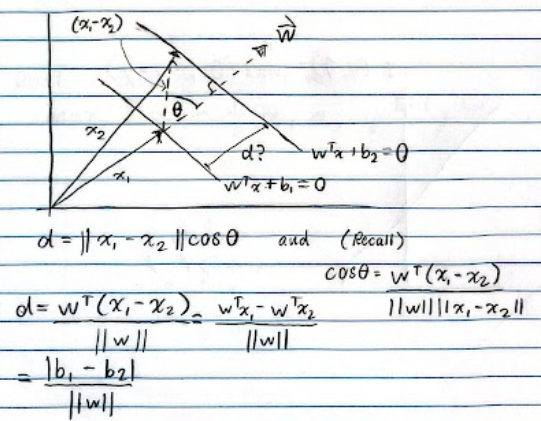 (x₁-x₂)
w⃗
θ
x₂
d?
wᵀx+b₂=0
x₁
wᵀx+b₁=0
d = ||x₁ - x₂||cosθ and (Recall)
cosθ = wᵀ(x₁-x₂) / ||w|| ||x₁-x₂||
d = wᵀ(x₁-x₂) / ||w|| = wᵀx₁ - wᵀx₂ / ||w||
= |b₁ - b₂| / ||w||